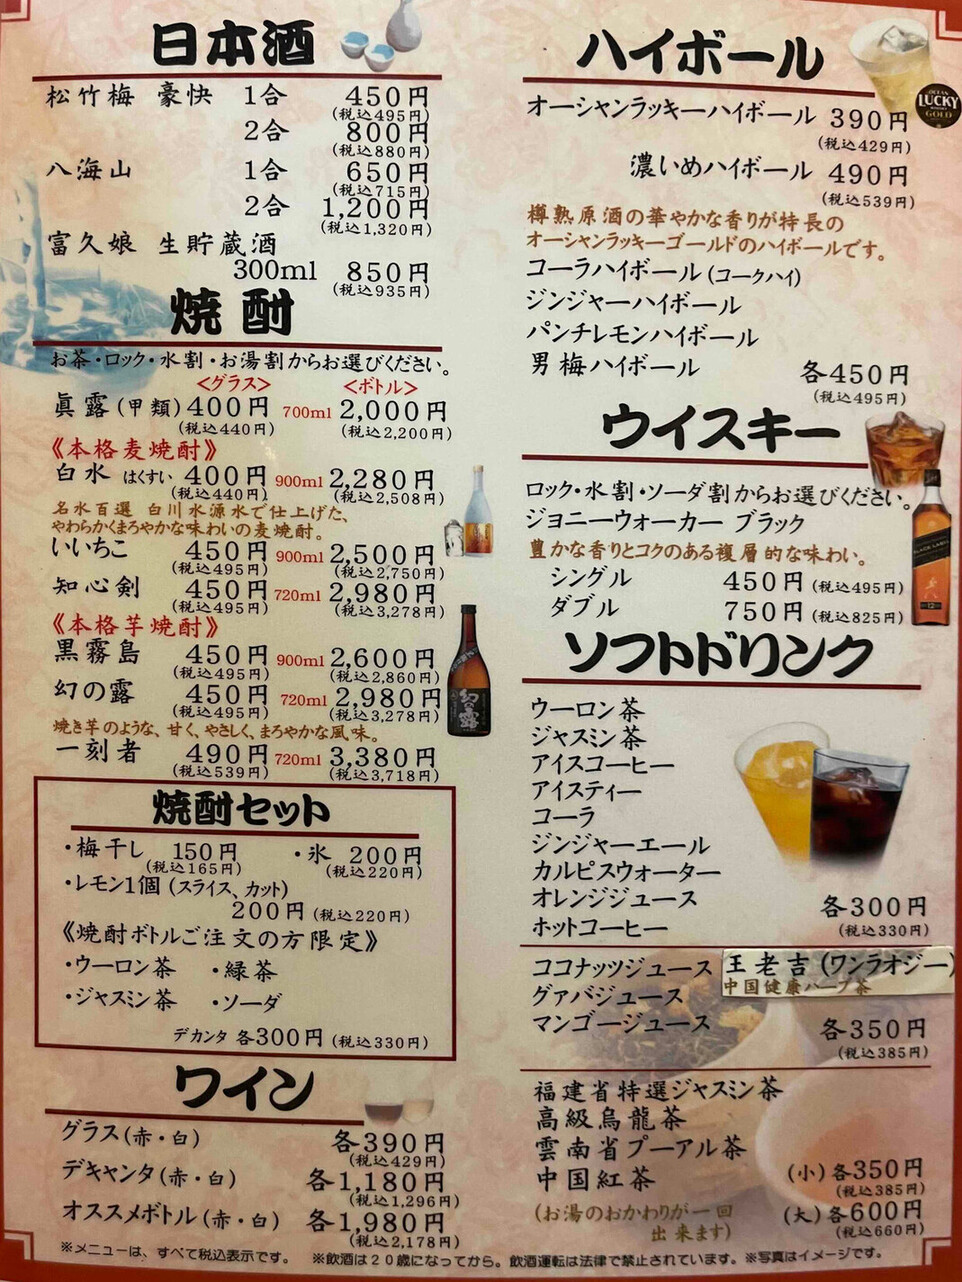 日本酒
松竹梅 豪快 1合 450円
(税込495円)
2合 800円
(税込880円)
八海山 1合 650円
(税込715円)
2合 1,200円
(税込1,320円)
富久娘 生貯蔵酒
300ml 850円
(税込935円)
焼酎
お茶・ロック・水割・お湯割からお選びください。
<グラス> <ボトル>
眞露(甲類) 400円 700ml 2,000円
(税込440円) (税込2,200円)
《本格麦焼酎》
白水 はくすい 400円 900ml 2,280円
(税込440円) (税込2,508円)
名水百選 白川水源水で仕上げた、
やわらかくまろやかな味わいの麦焼酎。
いいちこ 450円 900ml 2,500円
(税込495円) (税込2,750円)
知心剣 450円 720ml 2,980円
(税込495円) (税込3,278円)
《本格芋焼酎》
黒霧島 450円 900ml 2,600円
(税込495円) (税込2,860円)
幻の露 450円 720ml 2,980円
(税込495円) (税込3,278円)
焼き芋のような、甘く、やさしく、まろやかな風味。
一刻者 490円 720ml 3,380円
(税込539円) (税込3,718円)
幻の露
焼酎セット
・梅干し 150円 ・氷 200円
(税込165円) (税込220円)
・レモン1個(スライス、カット)
200円(税込220円)
《焼酎ボトルご注文の方限定》
・ウーロン茶 ・緑茶
・ジャスミン茶 ・ソーダ
デカンタ 各300円(税込330円)
ワイン
グラス(赤・白) 各390円
(税込429円)
デキャンタ(赤・白) 各1,180円
(税込1,296円)
オススメボトル(赤・白) 各1,980円
(税込2,178円)
ハイボール
OCEAN
LUCKY
GOLD
オーシャンラッキーハイボール 390円
(税込429円)
濃いめハイボール 490円
(税込539円)
樽熟原酒の華やかな香りが特長の
オーシャンラッキーゴールドのハイボールです。
コーラハイボール(コークハイ)
ジンジャーハイボール
パンチレモンハイボール
男梅ハイボール 各450円
(税込495円)
ウイスキー
ロック・水割・ソーダ割からお選びください。
ジョニーウォーカー ブラック
豊かな香りとコクのある複層的な味わい。
シングル 450円(税込495円)
ダブル 750円(税込825円)
BLACK LABEL
12
ソフトドリンク
ウーロン茶
ジャスミン茶
アイスコーヒー
アイスティー
コーラ
ジンジャーエール
カルピスウォーター
オレンジジュース 各300円
ホットコーヒー (税込330円)
ココナッツジュース 王老吉(ワンラオジー)
中国健康ハーブ茶
グァバジュース
マンゴージュース 各350円
(税込385円)
福建省特選ジャスミン茶
高級烏龍茶
雲南省プーアル茶
中国紅茶 (小)各350円
(税込385円)
(お湯のおかわりが一回 (大)各600円
出来ます) (税込660円)
※メニューは、すべて税込表示です。 ※飲酒は20歳になってから。飲酒運転は法律で禁止されています。※写真はイメージです。